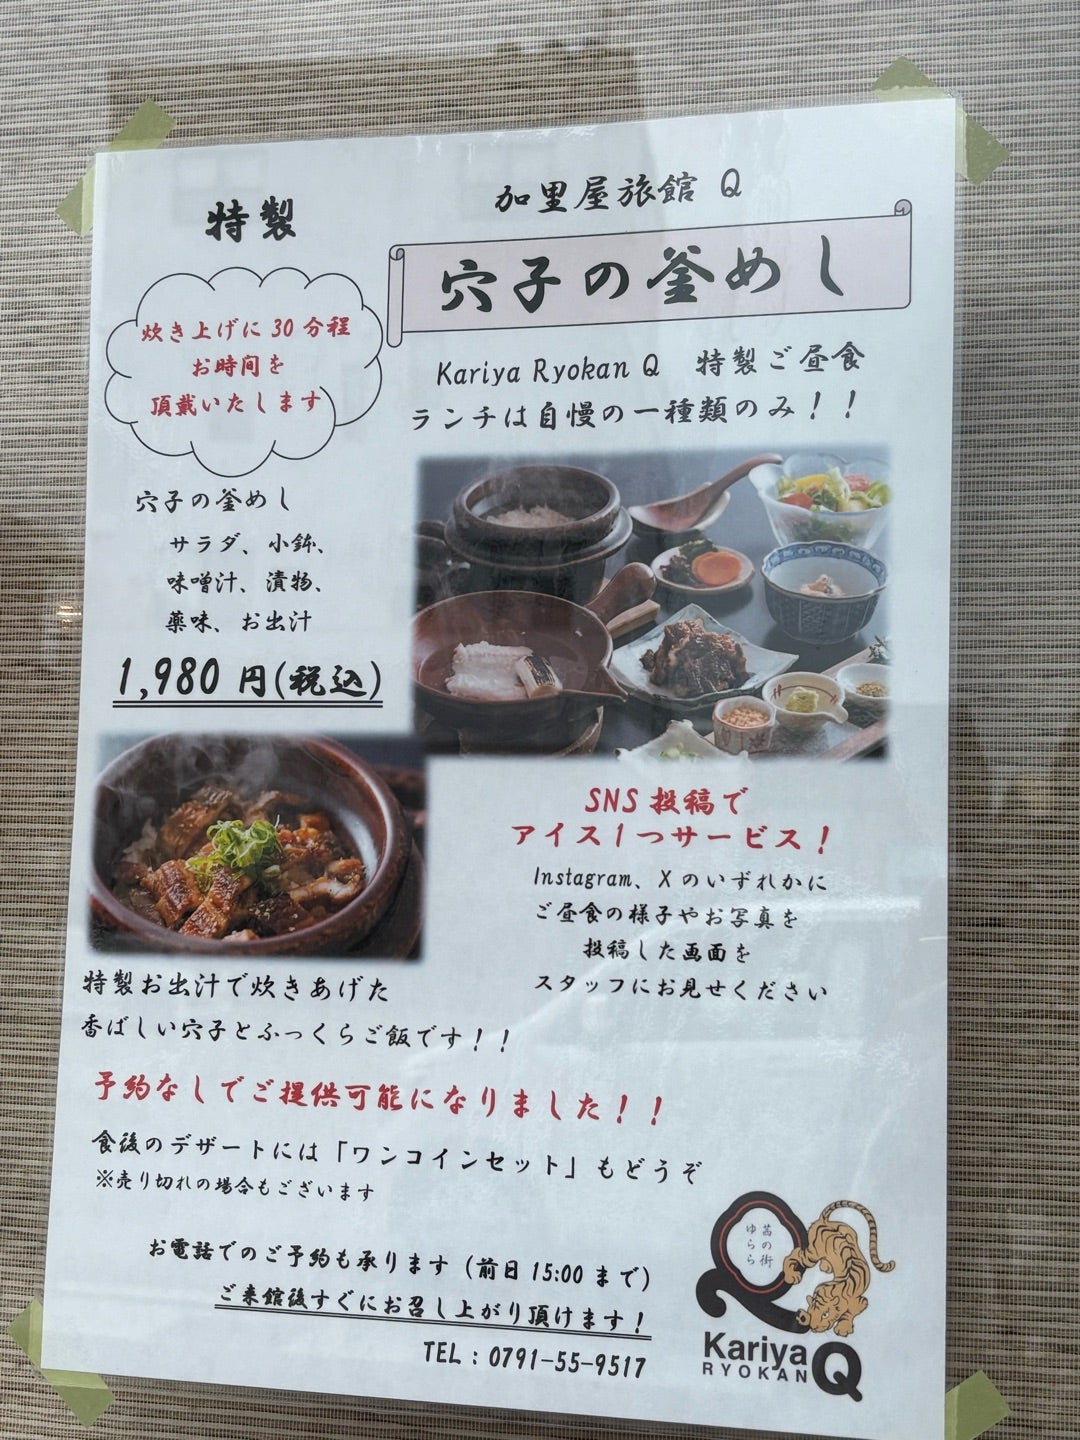 特製
加里屋旅館 Q
穴子の釜めし
炊き上げに 30 分程
お時間を
頂戴いたします
Kariya Ryokan Q　特製ご昼食
ランチは自慢の一種類のみ！！
穴子の釜めし
サラダ、小鉢、
味噌汁、漬物、
薬味、お出汁
1,980 円(税込)
SNS 投稿で
アイス1つサービス！
Instagram、X のいずれかに
ご昼食の様子やお写真を
投稿した画面を
スタッフにお見せください
特製お出汁で炊きあげた
香ばしい穴子とふっくらご飯です！！
予約なしでご提供可能になりました！！
食後のデザートには「ワンコインセット」もどうぞ
※売り切れの場合もございます
お電話でのご予約も承ります (前日 15:00 まで)
ご来館後すぐにお召し上がり頂けます！
TEL：0791-55-9517
茜の街
ゆらら
Kariya Q
RYOKAN